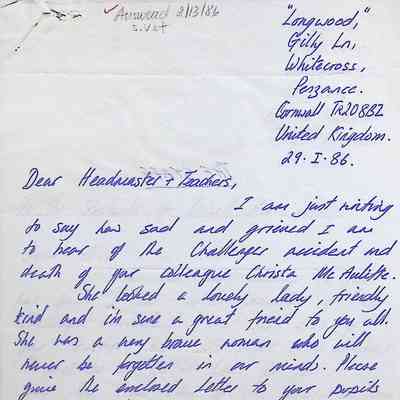 Answered 2/13/86
S. Vst
"Longwood,"
Gilly Ln,
Whitecross,
Penzance.
Cornwall TR208BZ
United Kingdom.
29·I·86.
Dear Headmaster + Teachers,
I am just writing
to say how sad and grieved I am
to hear of the Challenger accident and
death of your colleague Christa McAuliffe.
She looked a lovely lady, friendly
kind and i'm sure a great friend to you all.
She was a very brave woman who will
never be forgotten in our minds. Please
give the enclosed letter to your pupils